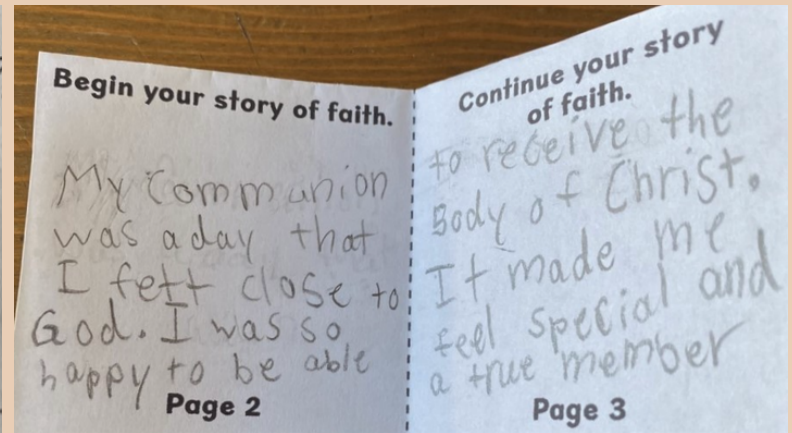 Begin your story of faith.
My Communion
was a day that
I felt close to
God. I was so
happy to be able
Page 2
Continue your story
of faith.
to receive the
Body of Christ.
It made me
feel special and
a true member
Page 3